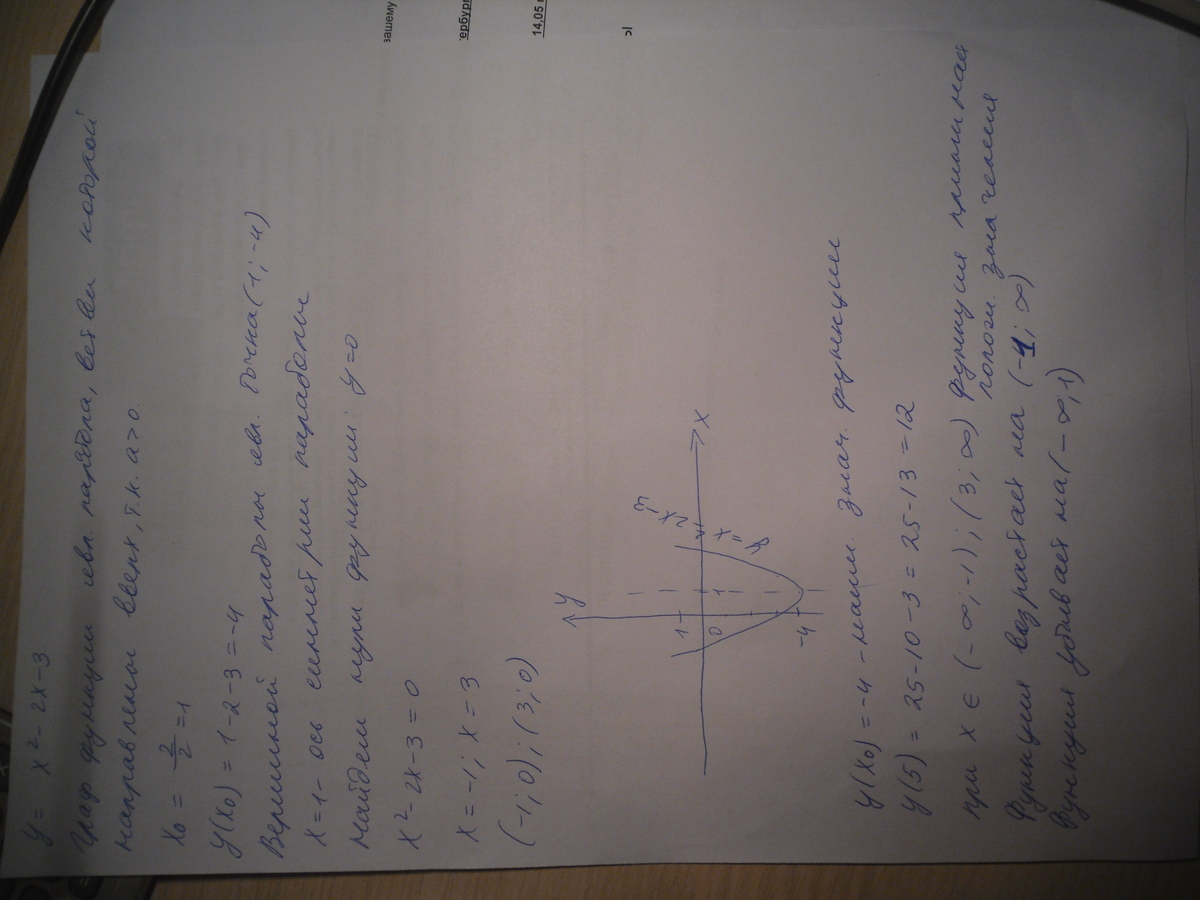 y = x² - 2x - 3
Граф. функции явл. парабола, ветви которой
направлены вверх, т.к. a > 0
x₀ = 2/2 = 1
y(x₀) = 1 - 2 - 3 = -4
Вершиной параболы явл. точка (1; -4)
x = 1 - ось симметрии параболы
Найдем нули функции: y = 0
x² - 2x - 3 = 0
x = -1; x = 3
(-1; 0); (3; 0)
y
x
1
0
1
-4
y(x₀) = -4 - наим. знач. функции
y(5) = 25 - 10 - 3 = 25 - 13 = 12
при x ∈ (-∞; -1); (3; ∞) функция принимает
полож. значения
Функция возрастает на (-1; ∞)
Функция убивает на (-∞; 1)
вашему
ербург
14.05